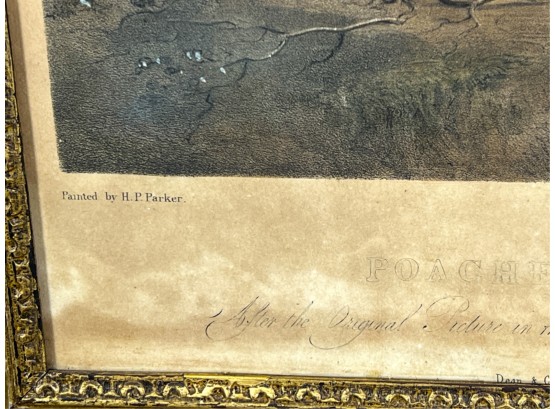 Painted by H.P. Parker.
POACHE
After the Original Picture in
Dean & C